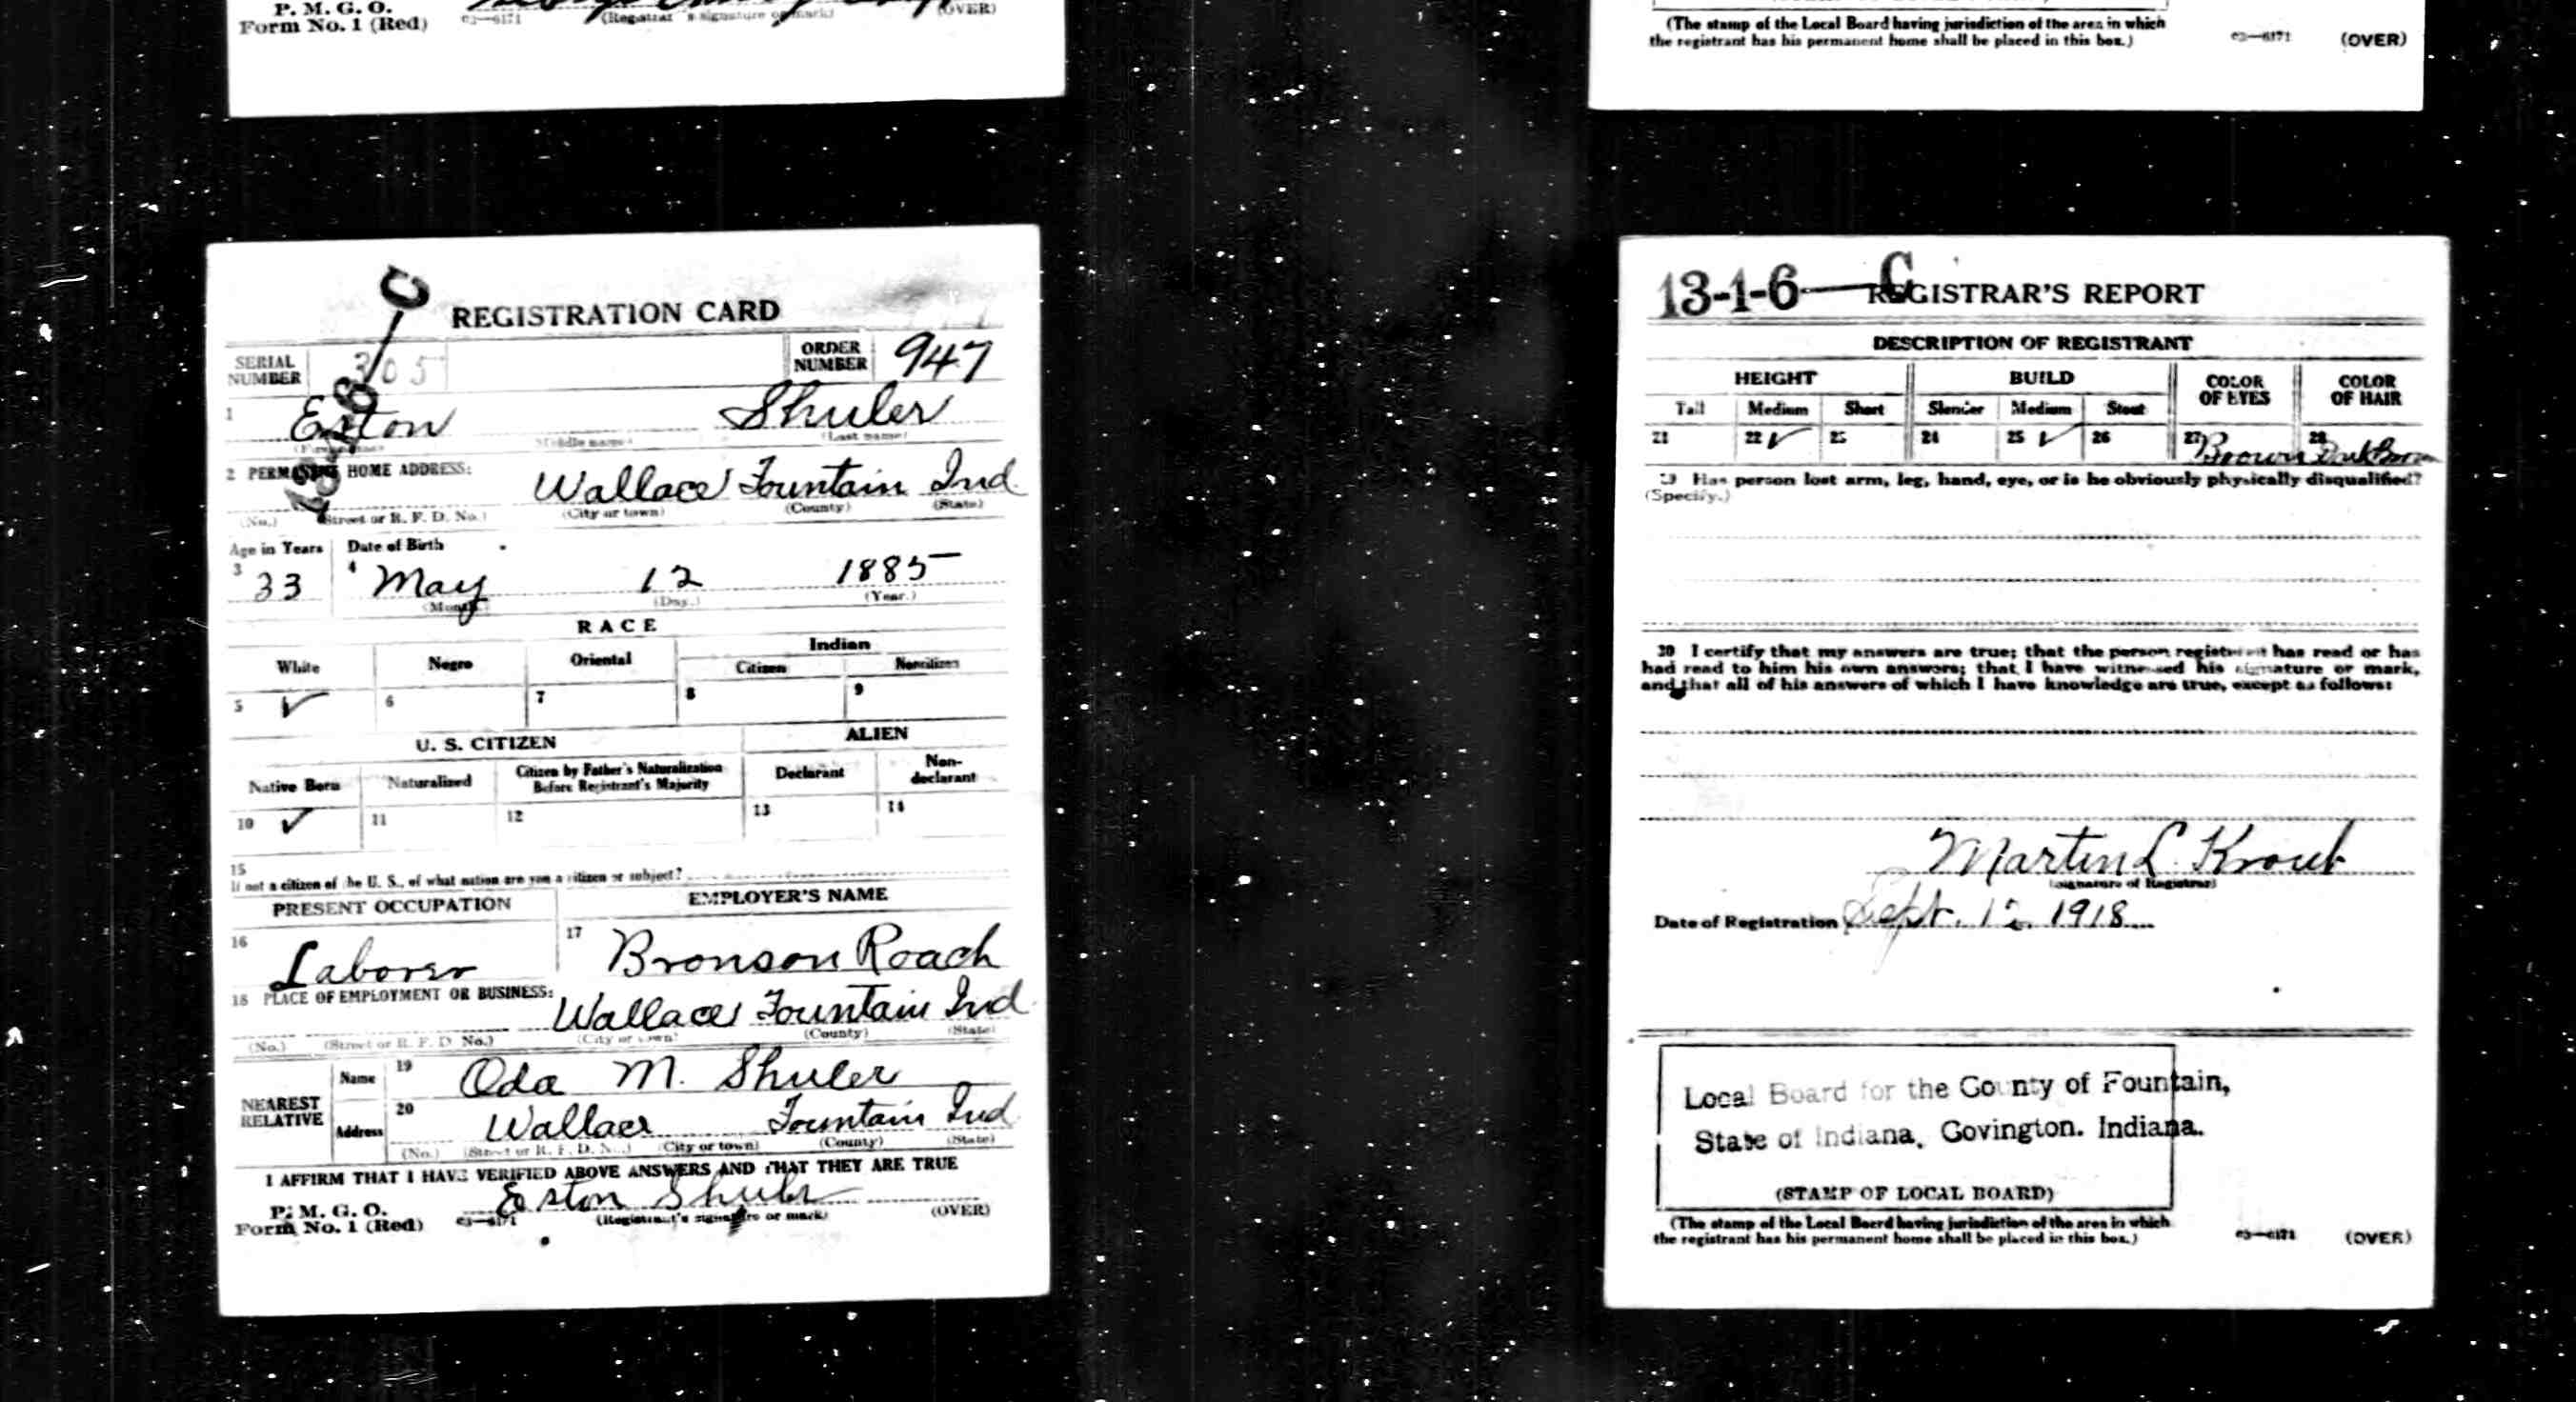 P. M. G. O.
Form No. 1 (Red) 03—6171 (Registrar's signature or mark) (OVER)
(The stamp of the Local Board having jurisdiction of the area in which
the registrant has his permanent home shall be placed in this box.) 03—6171 (OVER)
REGISTRATION CARD
SERIAL NUMBER 305 ORDER NUMBER 947
1 Eston Shuler
(First name) (Middle name) (Last name)
2 PERMANENT HOME ADDRESS:
Wallace Fountain Ind
(No.) (Street or R. F. D. No.) (City or town) (County) (State)
Age in Years Date of Birth
3 33 4 May 12 1885
(Month.) (Day.) (Year.)
RACE
White Negro Oriental Indian
Citizen Noncitizen
5 ✓ 6 7 8 9
U. S. CITIZEN ALIEN
Native Born Naturalized Citizen by Father's Naturalization Before Registrant's Majority Declarant Non-declarant
10 ✓ 11 12 13 14
15
If not a citizen of the U. S., of what nation are you a citizen or subject?
PRESENT OCCUPATION EMPLOYER'S NAME
16 Laborer 17 Bronson Roach
18 PLACE OF EMPLOYMENT OR BUSINESS:
Wallace Fountain Ind
(No.) (Street or R. F. D. No.) (City or town) (County) (State)
NEAREST RELATIVE
Name 19 Oda M. Shuler
Address 20 Wallace Fountain Ind
(No.) (Street or R. F. D. No.) (City or town) (County) (State)
I AFFIRM THAT I HAVE VERIFIED ABOVE ANSWERS AND THAT THEY ARE TRUE
P. M. G. O. Eston Shuler
Form No. 1 (Red) 03—6171 (Registrant's signature or mark) (OVER)
13-1-6—C REGISTRAR'S REPORT
DESCRIPTION OF REGISTRANT
HEIGHT BUILD COLOR OF EYES COLOR OF HAIR
Tall Medium Short Slender Medium Stout
21 22 ✓ 23 24 25 ✓ 26 27 Brown 28 Dark Brown
29 Has person lost arm, leg, hand, eye, or is he obviously physically disqualified?
(Specify.)
30 I certify that my answers are true; that the person registered has read or has
had read to him his own answers; that I have witnessed his signature or mark,
and that all of his answers of which I have knowledge are true, except as follows:
Martin L. Krout
(Signature of Registrar)
Date of Registration Sept. 12, 1918
Local Board for the County of Fountain,
State of Indiana, Covington. Indiana.
(STAMP OF LOCAL BOARD)
(The stamp of the Local Board having jurisdiction of the area in which
the registrant has his permanent home shall be placed in this box.) 03—6171 (OVER)